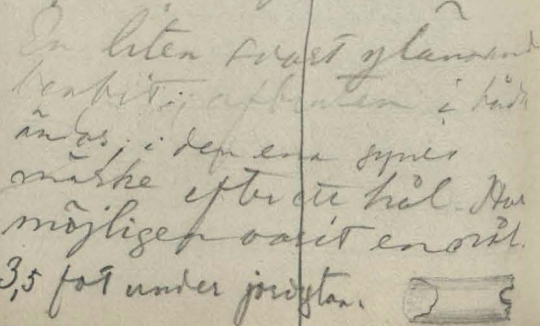 En liten svart glänsande
benbit, afbruten i båda
ändar, i den ena synes
märke efter ett hål. Har
möjligen varit en nål.
3,5 fot under jordytan.